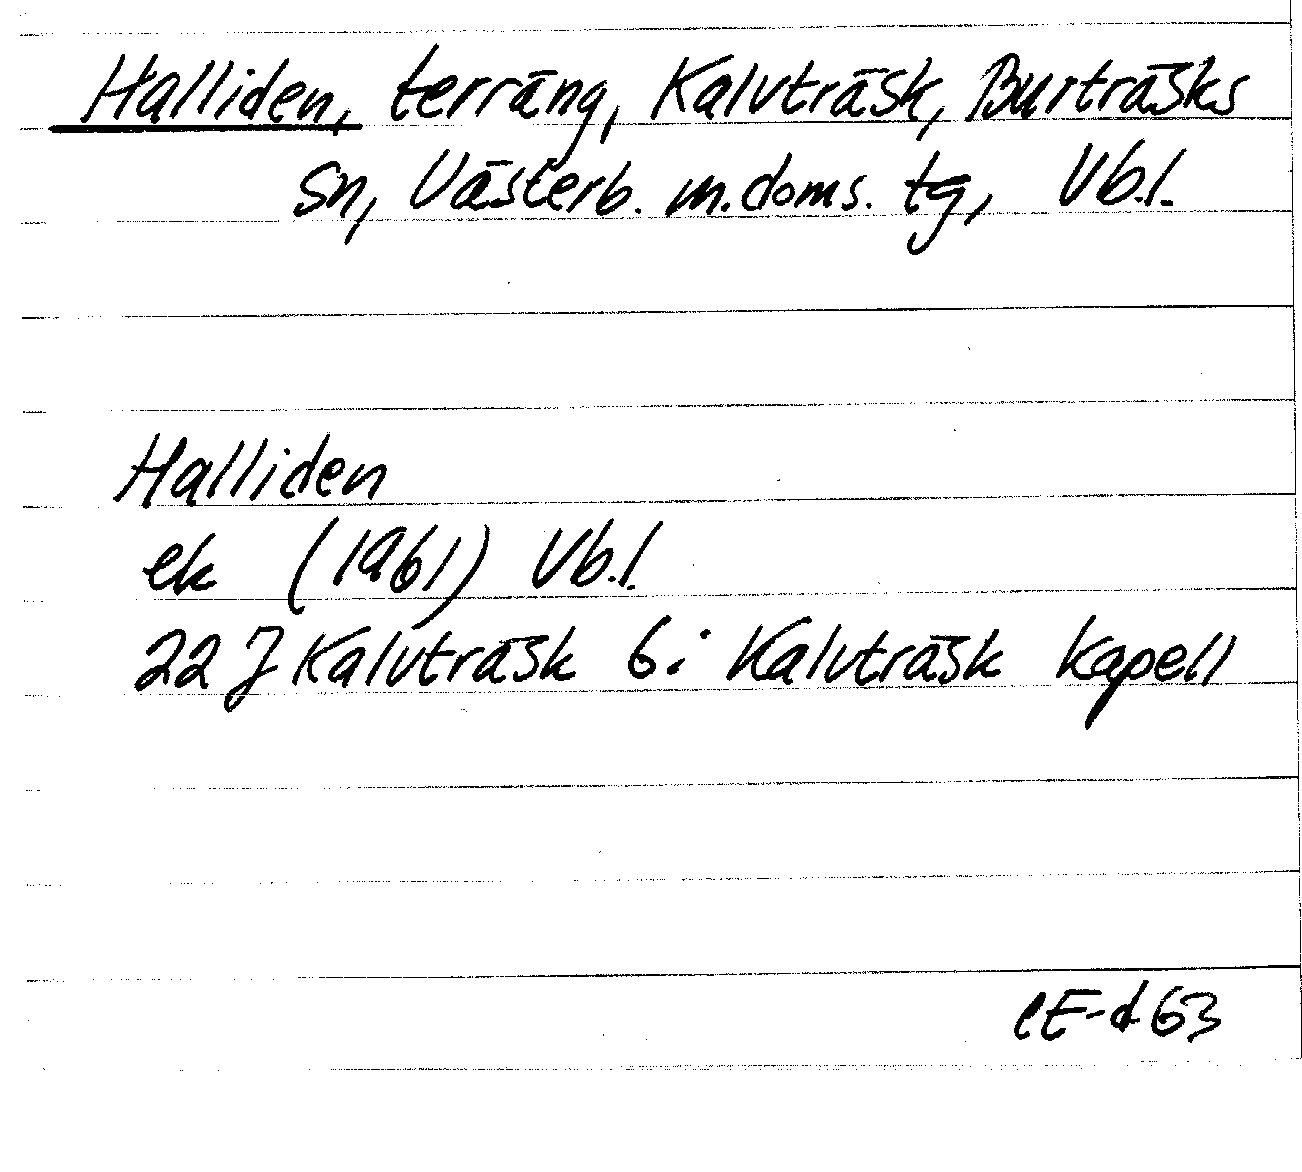 Halliden, terräng, Kalvträsk, Burträsks
sn, Västerb. m. doms. tg, Vb.l.
Halliden
ek (1961) Vb.l.
22 J Kalvträsk 6i Kalvträsk kapell
CE-d 63